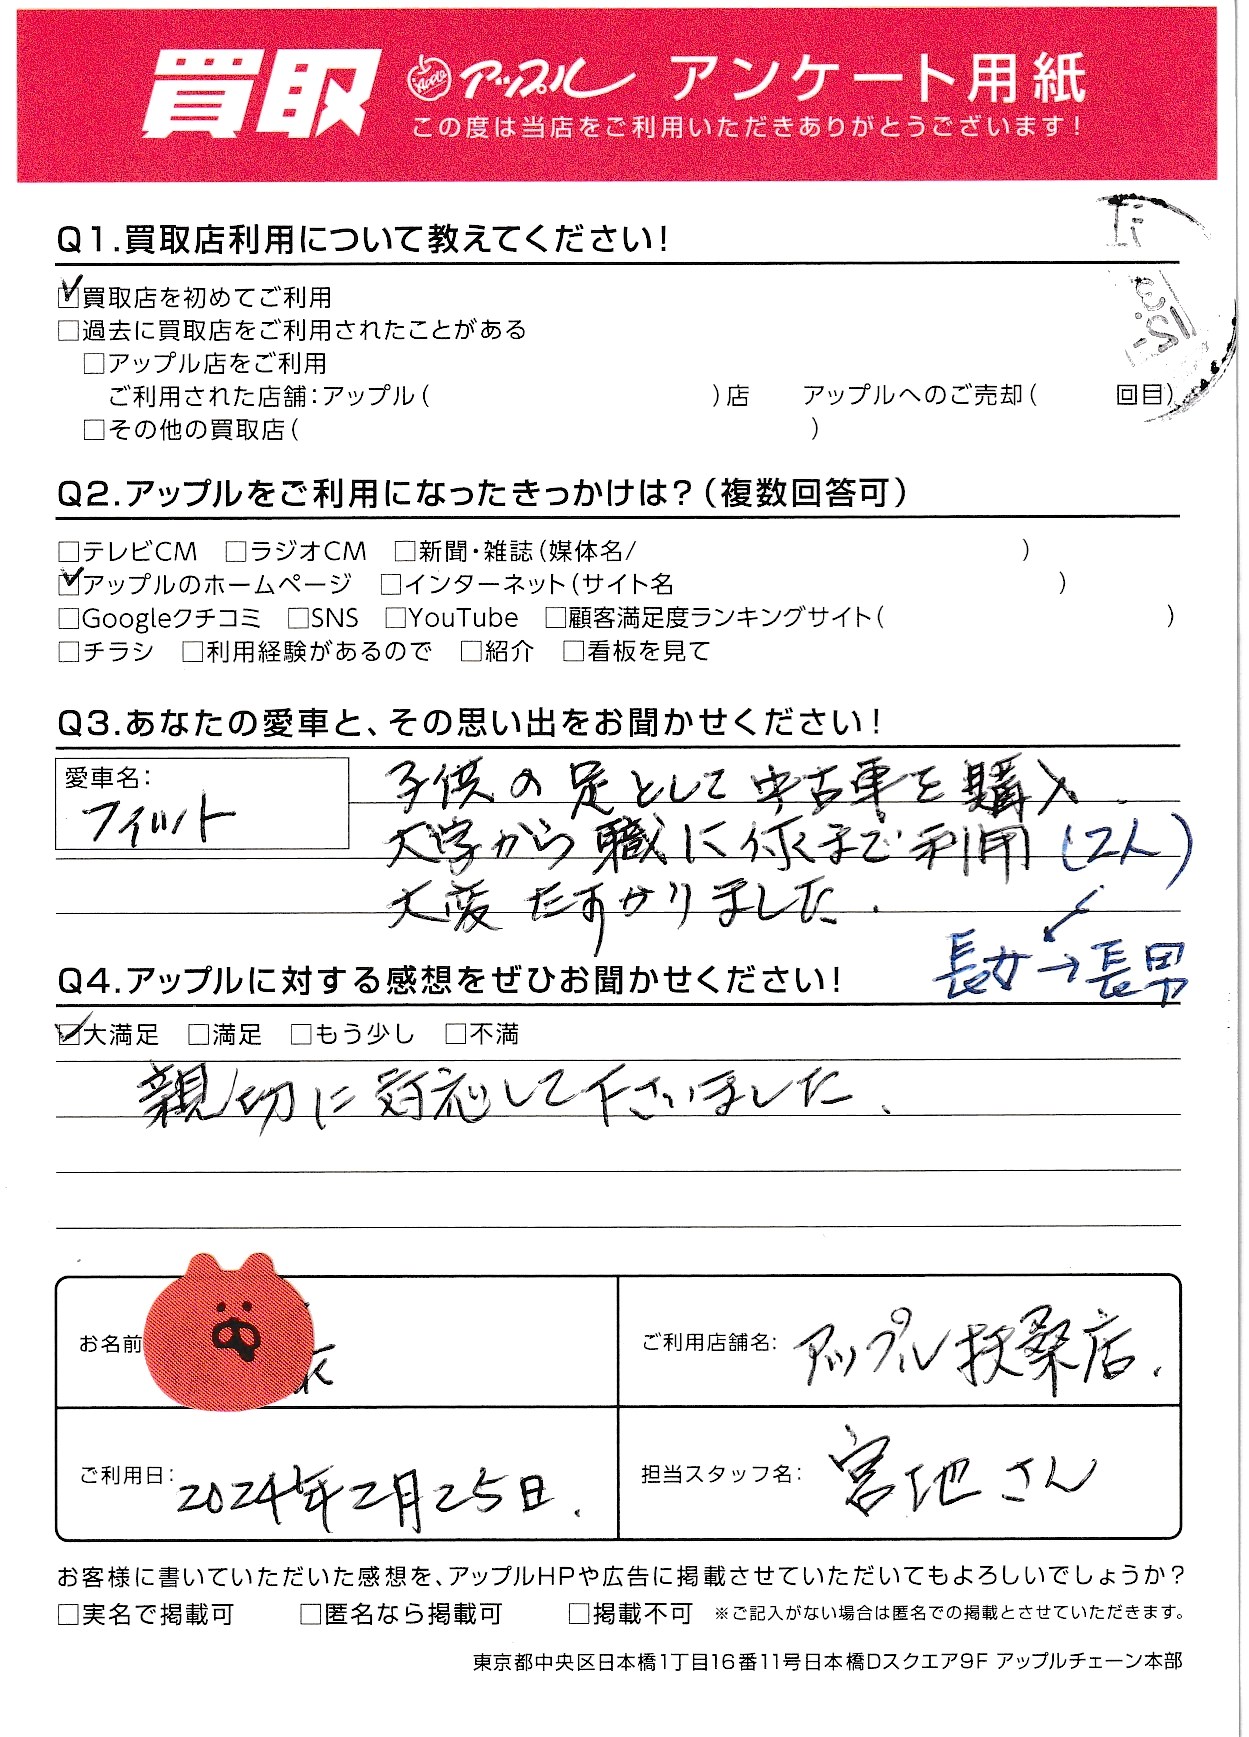 買取 Apple アップル アンケート用紙
この度は当店をご利用いただきありがとうございます!
Q1.買取店利用について教えてください!
☑買取店を初めてご利用
□過去に買取店をご利用されたことがある
□アップル店をご利用
ご利用された店舗:アップル( )店 アップルへのご売却( 回目)
□その他の買取店( )
Q2.アップルをご利用になったきっかけは?(複数回答可)
□テレビCM □ラジオCM □新聞・雑誌(媒体名/ )
☑アップルのホームページ □インターネット(サイト名 )
□Googleクチコミ □SNS □YouTube □顧客満足度ランキングサイト( )
□チラシ □利用経験があるので □紹介 □看板を見て
Q3.あなたの愛車と、その思い出をお聞かせください!
愛車名:
フィット
子供の足として中古車を購入.
大学から職に行くまで利用(2人)
大変たすかりました.
長女→長男
Q4.アップルに対する感想をぜひお聞かせください!
☑大満足 □満足 □もう少し □不満
親切に対応して下さいました、
お名前
ご利用店舗名: アップル扶桑店.
ご利用日: 2024年2月25日.
担当スタッフ名: 宮地さん
お客様に書いていただいた感想を、アップルHPや広告に掲載させていただいてもよろしいでしょうか?
□実名で掲載可 □匿名なら掲載可 □掲載不可 ※ご記入がない場合は匿名での掲載とさせていただきます。
東京都中央区日本橋1丁目16番11号日本橋Dスクエア9F アップルチェーン本部